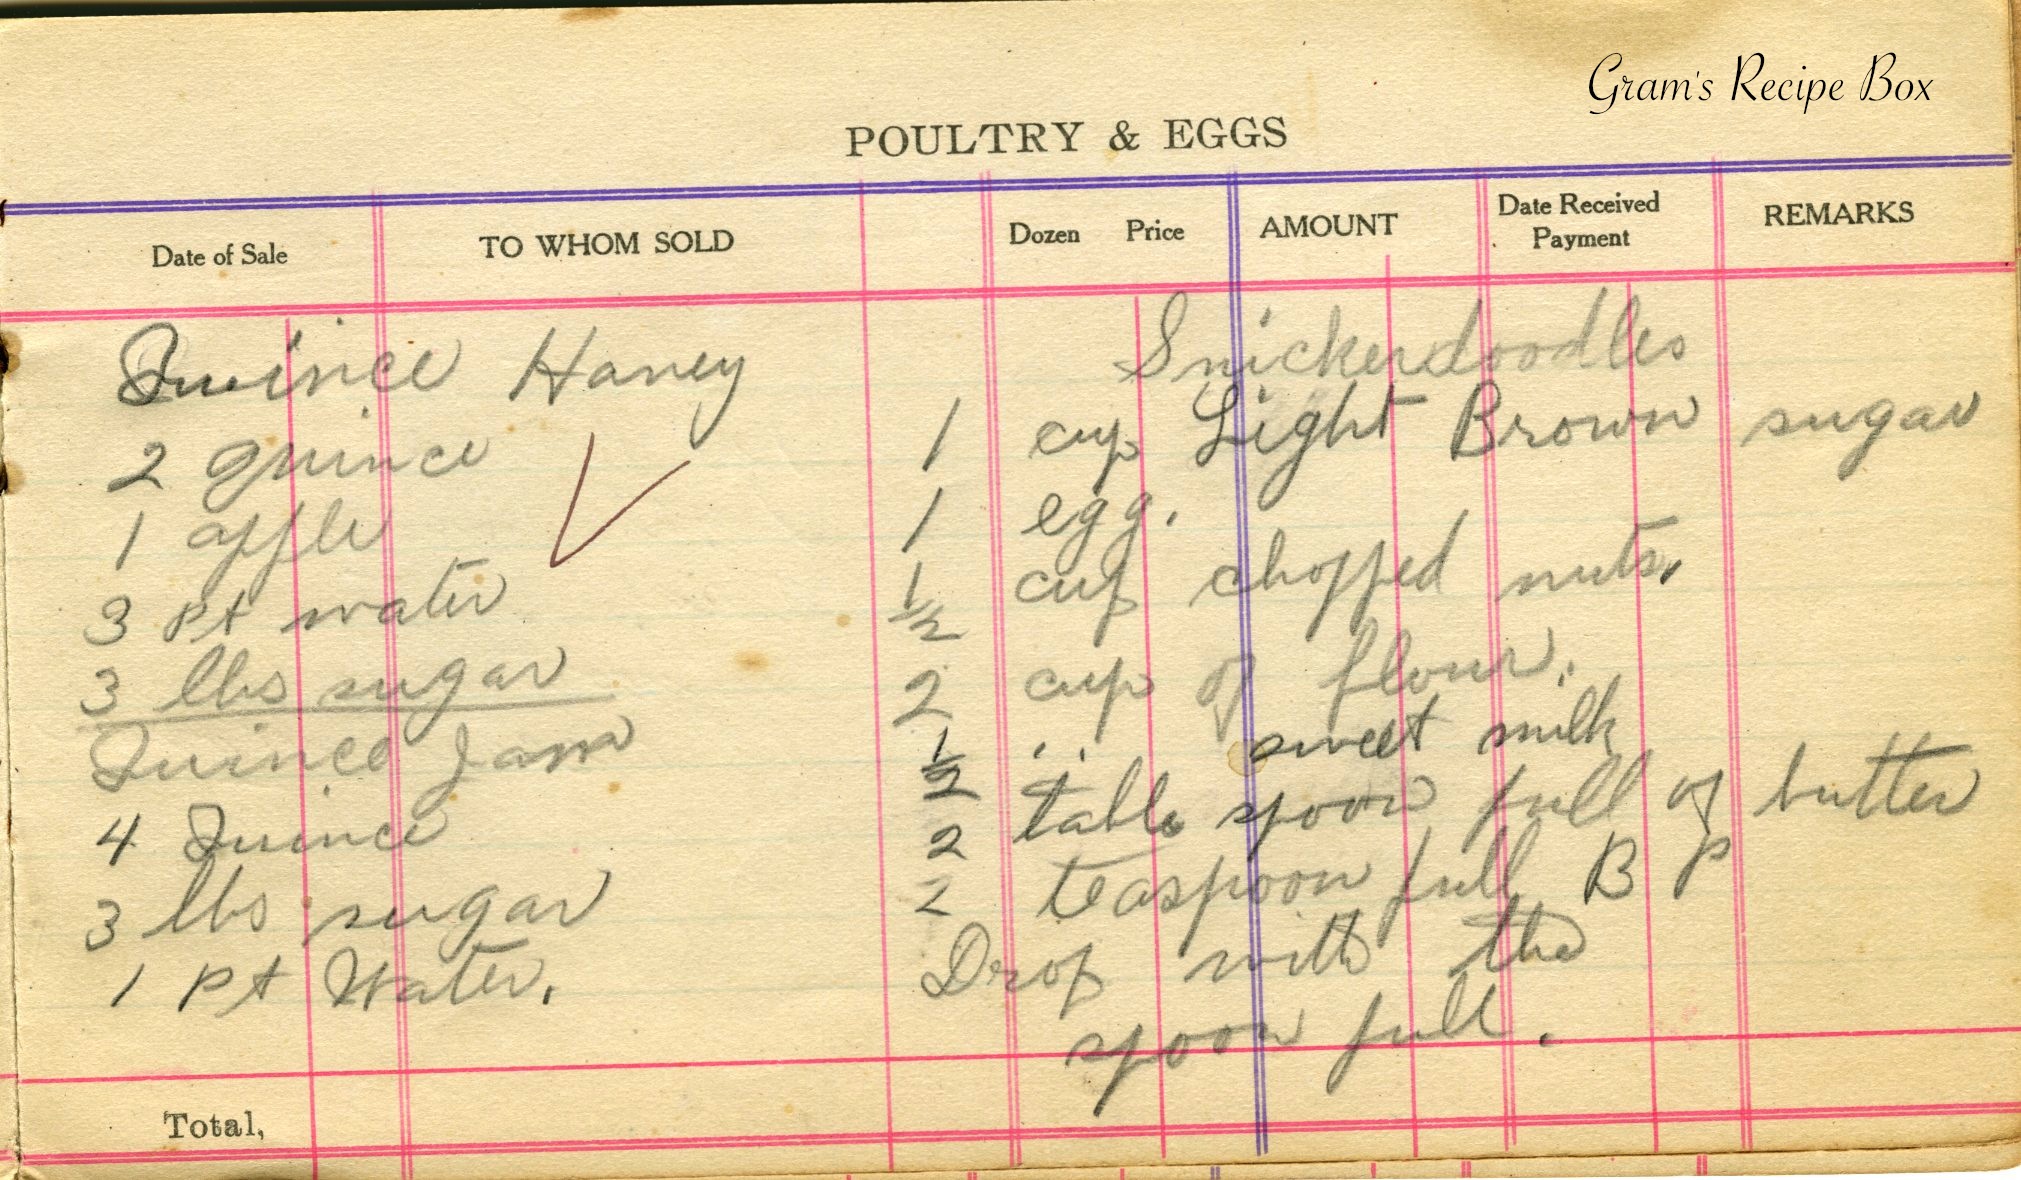 Gram's Recipe Box
POULTRY & EGGS
Date of Sale TO WHOM SOLD Dozen Price AMOUNT Date Received Payment REMARKS
Quince Honey
2 quince
1 apple
3 pt water
3 lbs sugar
Quince Jam
4 Quince
3 lbs sugar
1 pt Water.
Snickerdoodles
1 cup Light Brown sugar
1 egg.
1/2 cup chopped nuts.
2 cup of flour.
1/2 " sweet milk
2 table spoon full of butter
2 teaspoon full B P
Drop with the
spoon full.
Total,